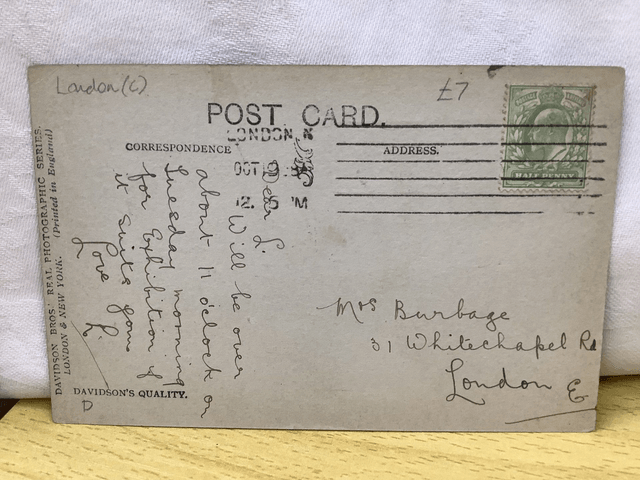 London (C)
£7
POST CARD.
LONDON. N
OCT
12. 5 PM
CORRESPONDENCE
ADDRESS.
HALF PENNY
DAVIDSON BROS.' REAL PHOTOGRAPHIC SERIES.
LONDON & NEW YORK. (Printed in England)
Dear L.
Will be over
about 11 o'clock on
Tuesday morning
for Exhibition if
it suits you
Love
L
Mrs Burbage
31 Whitechapel Rd
London E
DAVIDSON'S QUALITY.
D